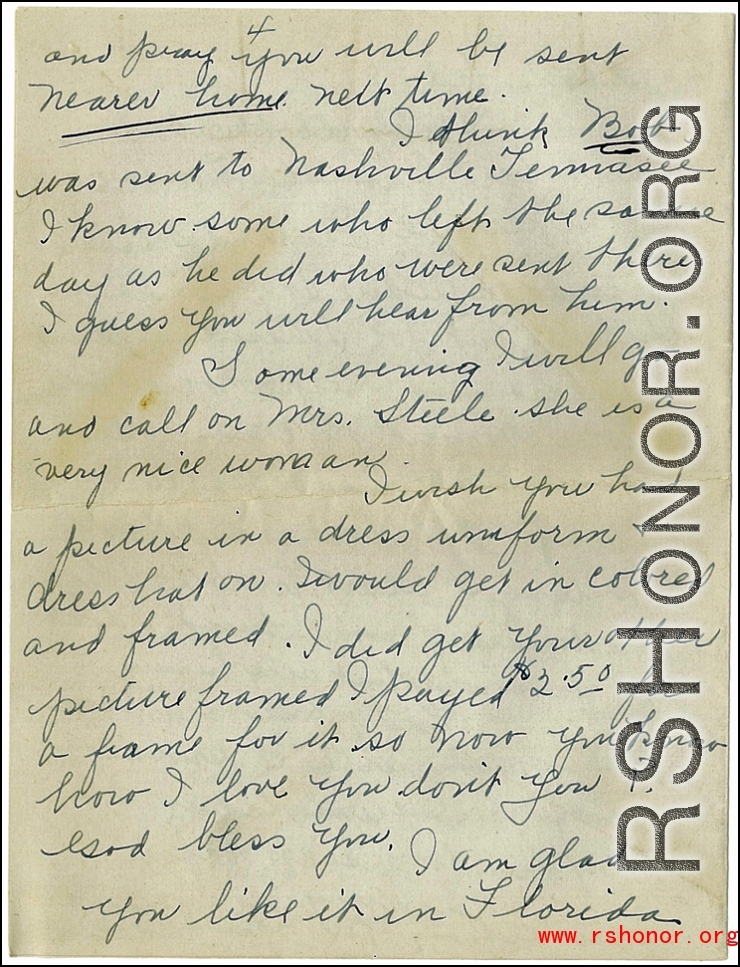 4
and pray you will be sent
nearer home nelt time.
I think Bob
was sent to Nashville Tennasee
I know some who left the same
day as he did who were sent there
I guess you will hear from him.
Some evening I will go
and call on Mrs. Steele she is a
very nice woman.
I wish you had
a picture in a dress uniform
dress hat on. I would get in colored
and framed. I did get your other
picture framed I payed $2.50 for
a frame for it so now you know
how I love you don't you?
God bless you.
I am glad
you like it in Florida
RSHONOR.ORG
www.rshonor.org